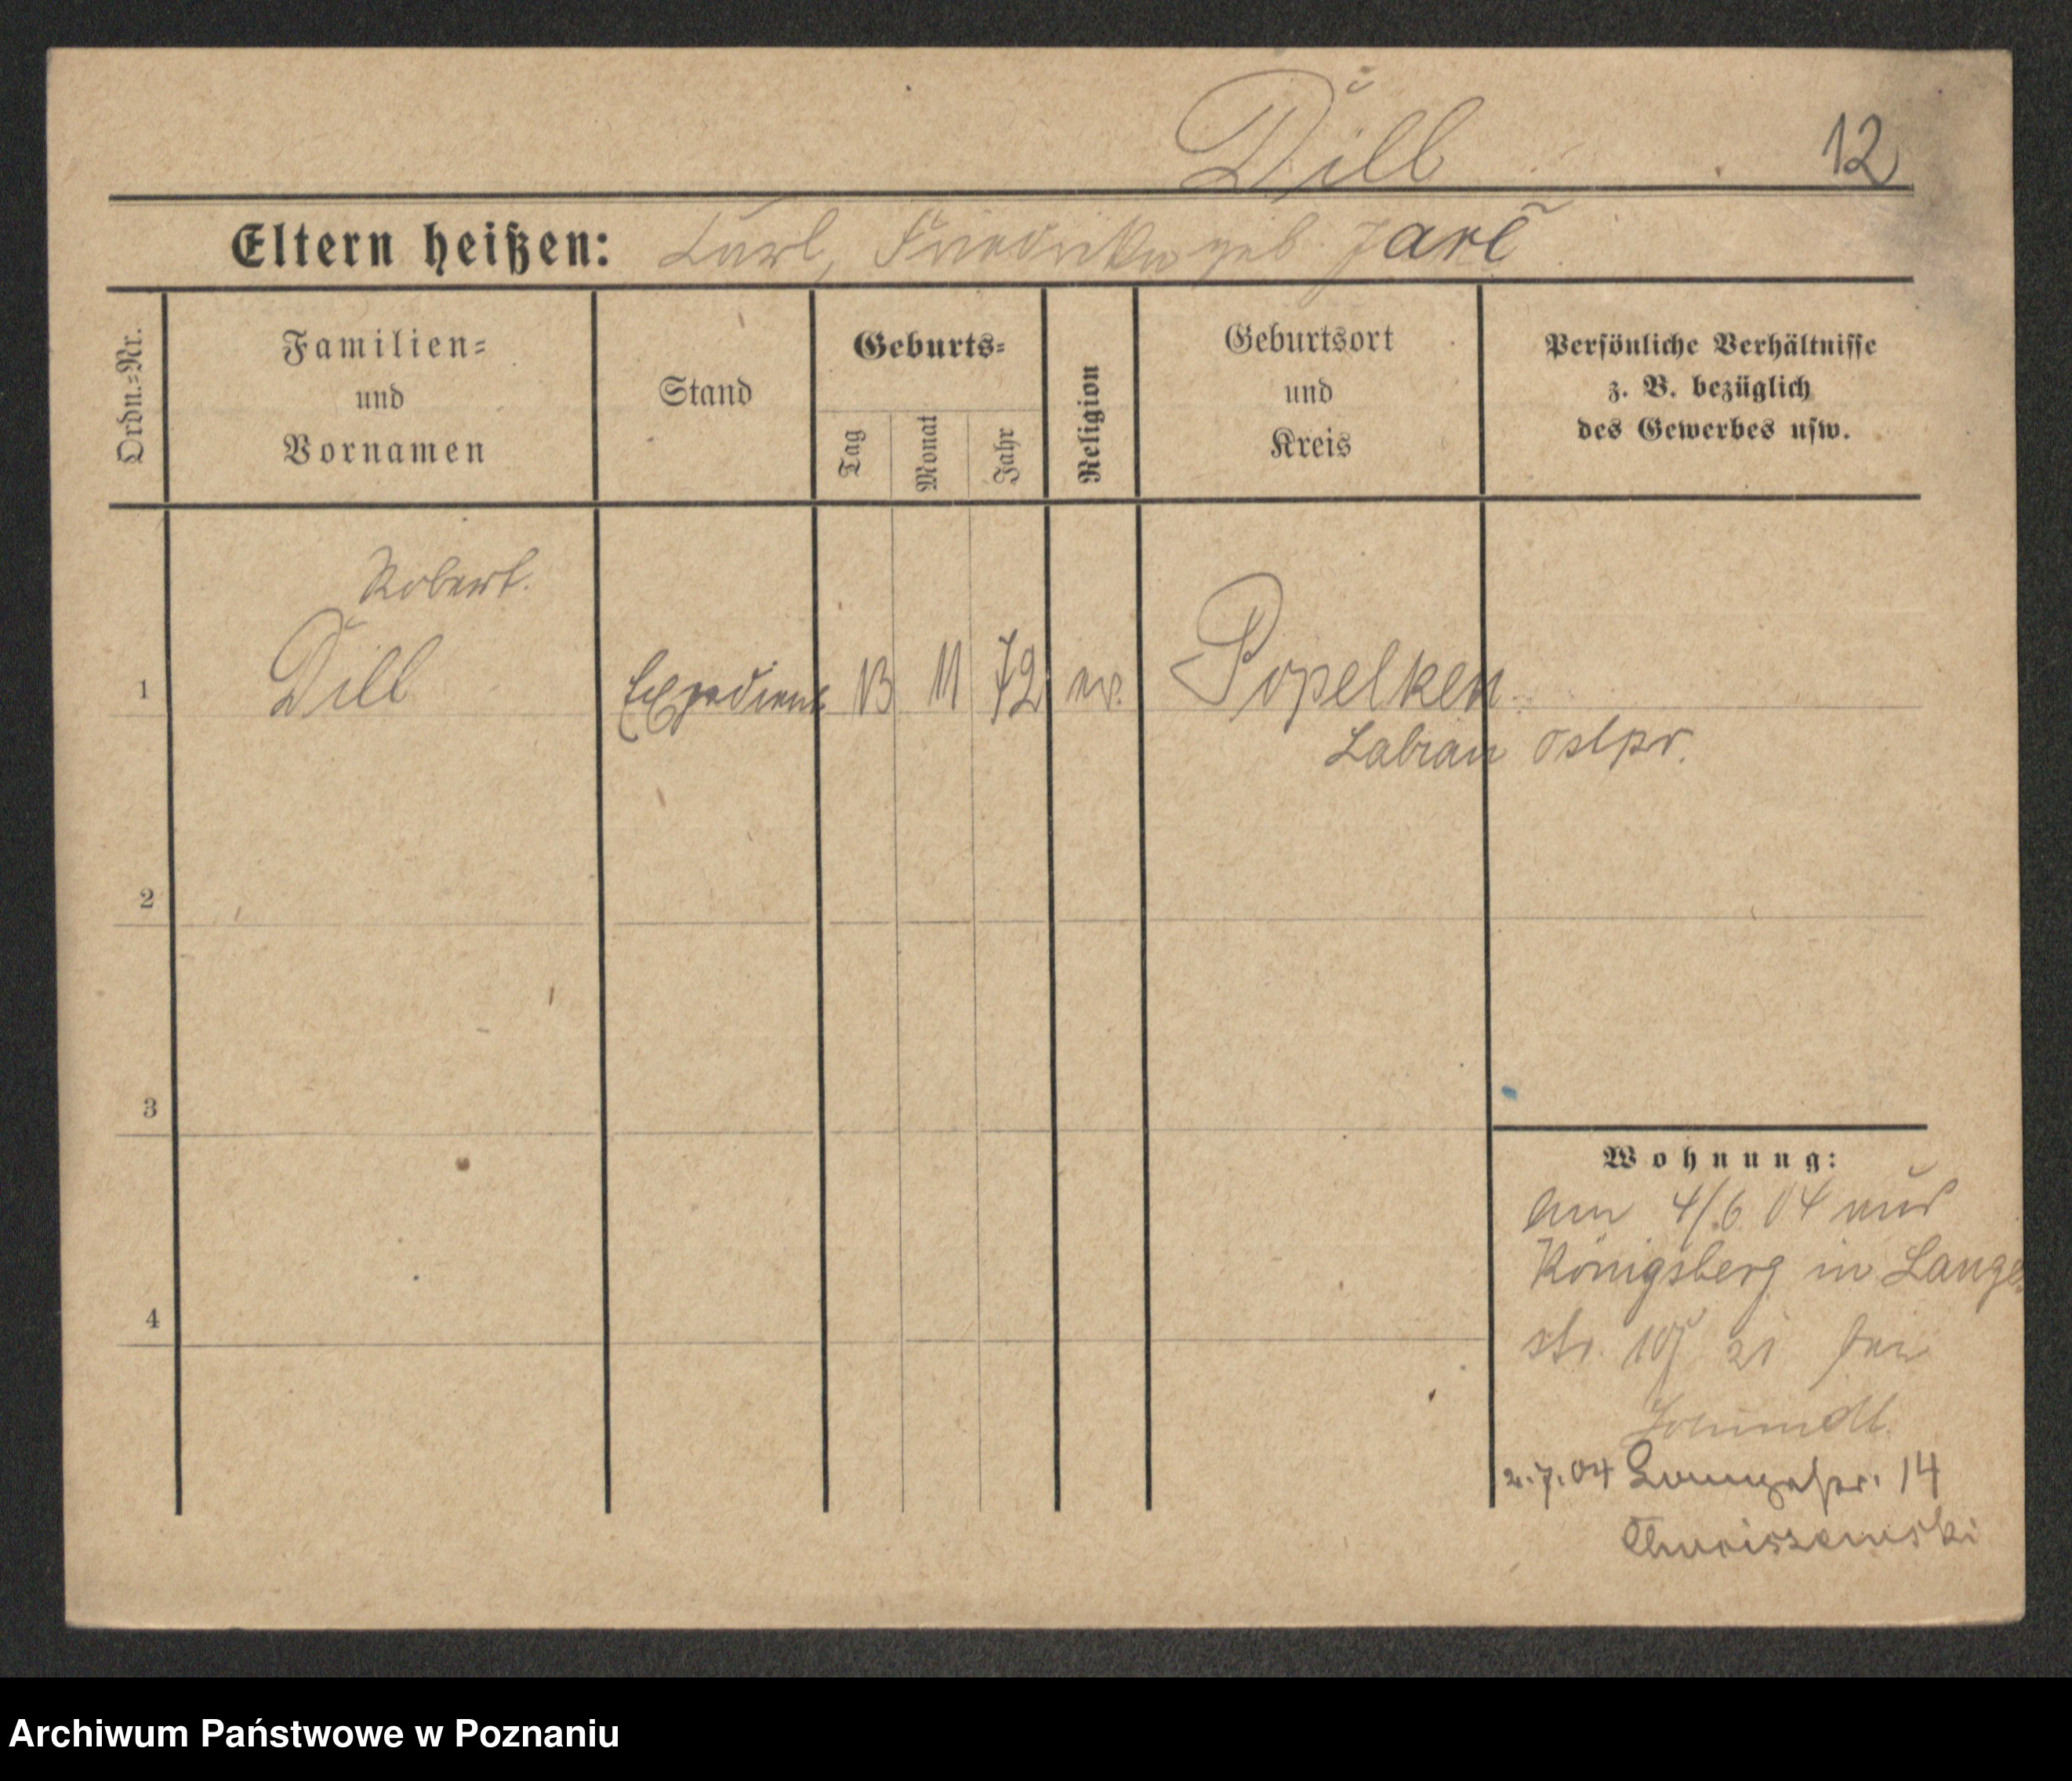 Dill
12
Eltern heißen: Carl, Friederike geb. Jarc
Ordn.=Nr.
Familien=
und
Vornamen
Stand
Geburts=
Tag
Monat
Jahr
Religion
Geburtsort
und
Kreis
Persönliche Verhältnisse
z. B. bezüglich
des Gewerbes usw.
Robert.
1 Dill Expedient 13 11 72 ev. Popelken
Labiau Ostpr.
2
3
4
Wohnung:
Am 4/6 04 aus
Königsberg in Lange
str. bei
2.7.04 14
Archiwum Państwowe w Poznaniu